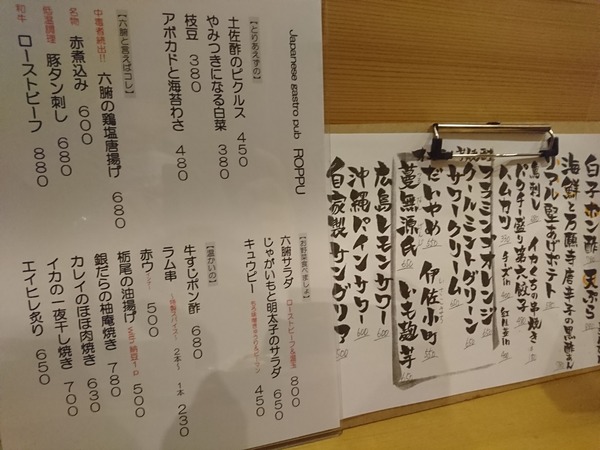 Japanese gastro pub ROPPU
【とりあえずの】
土佐酢のピクルス 450
やみつきになる白菜 380
枝豆 380
アボカドと海苔わさ 480
【六腑と言えばコレ】
中毒者続出!! 六腑の鶏塩唐揚げ 680
名物 赤煮込み 600
低温調理 豚タン刺し 680
和牛 ローストビーフ 880
【お野菜食べましょ】
六腑サラダ ローストビーフ&温玉 800
じゃがいもと明太子のサラダ 650
キュウピー 450
【温かいの】
牛すじポン酢 680
ラム串 特製スパイス 2本〜 1本 230
赤ウィンナー 500
栃尾の油揚げ with納豆1p 780
銀だらの柚庵焼き 630
カレイのほほ肉焼き
イカの一夜干し焼き 700
エイヒレ炙り 650
白子ポン酢 天ぷら
海鮮と万願寺唐辛子の黒酢あん
ハムカツ チーズin 紅生姜in
フラミンゴオレンジ
クールミントグリーン
サワークリーム
だいやめ 伊佐小町
蔓無源氏 いも麹芋
広島レモンサワー 600
沖縄パインサワー 600
自家製サングリア 500